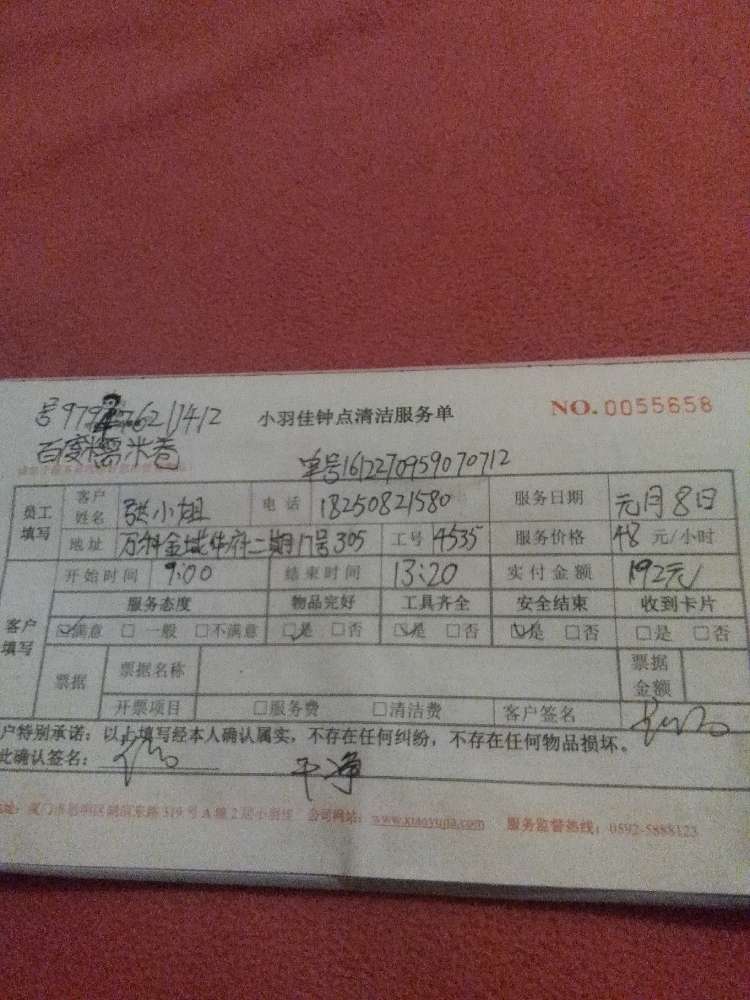 小羽佳钟点清洁服务单 NO. 0055658
百度糯米卷
单号1612270959070712
员工填写 客户姓名 张小姐 电话 18250821580 服务日期 元月8日
地址 万科金域华府二期17号305 工号 4535 服务价格 48 元/小时
开始时间 9:00 结束时间 13:20 实付金额 192元
客户填写 服务态度 物品完好 工具齐全 安全结束 收到卡片
☑满意 □一般 □不满意 ☑是 □否 ☑是 □否 ☑是 □否 □是 □否
票据 票据名称 票据金额
开票项目 □服务费 □清洁费 客户签名
户特别承诺：以上填写经本人确认属实，不存在任何纠纷，不存在任何物品损坏。
此确认签名： 干净
址：厦门市思明区湖滨东路319号A幢2层小羽佳 公司网站：www.xiaoyujia.com 服务监督热线：0592-5888123